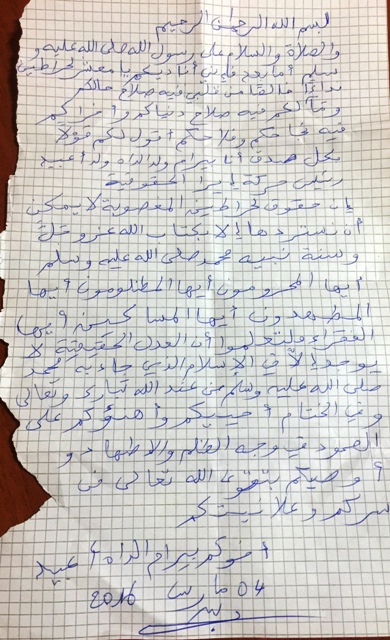 بسم الله الرحمان الرحيم
والصلاة والسلام على رسول الله صلى الله عليه و
سلم أما بعد فإنني أناديكم يا معشر لحراطين
نداءا خالصا من قلبي فيه صلاح حالكم
ومآلكم فيه صلاح دنياكم وأخراكم
فيه نجاحكم وفلاحكم أقول لكم قولا
بكل صدق أنا بيرام ولد الداه ولد اعبيد
رئيس حركة إيرا الحقوقية
إن حقوق لحراطين المغصوبة لا يمكن
أن نستردها إلا بكتاب الله عز وجل
وسنة نبيه محمد صلى الله عليه وسلم
أيها المحرومون أيها المظلومون أيها
المضطهدون أيها المساكين أيها
الفقراء فلتعلموا أن العدل الحقيقية لا
يوجد إلا في الإسلام الذي جاء به محمد
صلى الله عليه وسلم من عند الله تبارك وتعالى
وفي الختام أحييكم وأهنؤكم على
الصمود في وجه الظلم والاظطهاد و
أوصيكم بتقوى الله تعالى في
سركم وعلانيتكم
أخوكم بيرام الداه أعبيد
04 مارس 2016